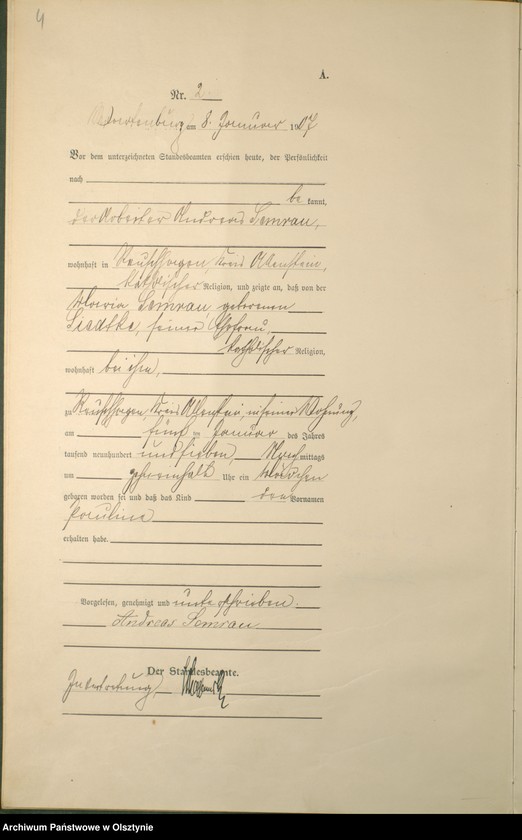 4
A.
Nr. 2
Wartenburg am 8. Januar 1907
Vor dem unterzeichneten Standesbeamten erschien heute, der Persönlichkeit
nach
be kannt,
der Arbeiter Andreas Semrau,
wohnhaft in Kreis Allenstein,
katholischer Religion, und zeigte an, daß von der
Maria Semrau, geborenen
seiner Ehefrau,
katholischer Religion,
wohnhaft bei ihm,
zu Kreis Allenstein, in seiner Wohnung,
am fünf ten Januar des Jahres
tausend neunhundert und sieben, Nach mittags
um Uhr ein Mädchen
geboren worden sei und daß das Kind den Vornamen
Paulina
erhalten habe.
Vorgelesen, genehmigt und unterschrieben.
Andreas Semrau
Der Standesbeamte.
In Vertretung
Archiwum Państwowe w Olsztynie